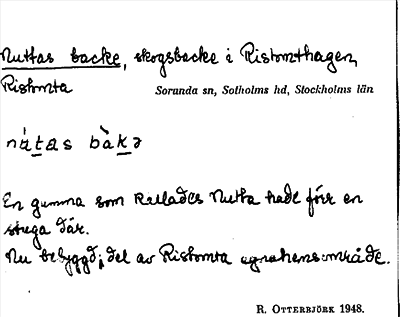 Nuttas backe, skogsbacke i Ristomthagen,
Ristomta
Sorunda sn, Sotholms hd, Stockholms län
nùtas bàkə
En gumma som kallades Nutta hade förr en
stuga där.
Nu bebyggd, del av Ristomta egnahemsområde.
R. OTTERBJÖRK 1948.